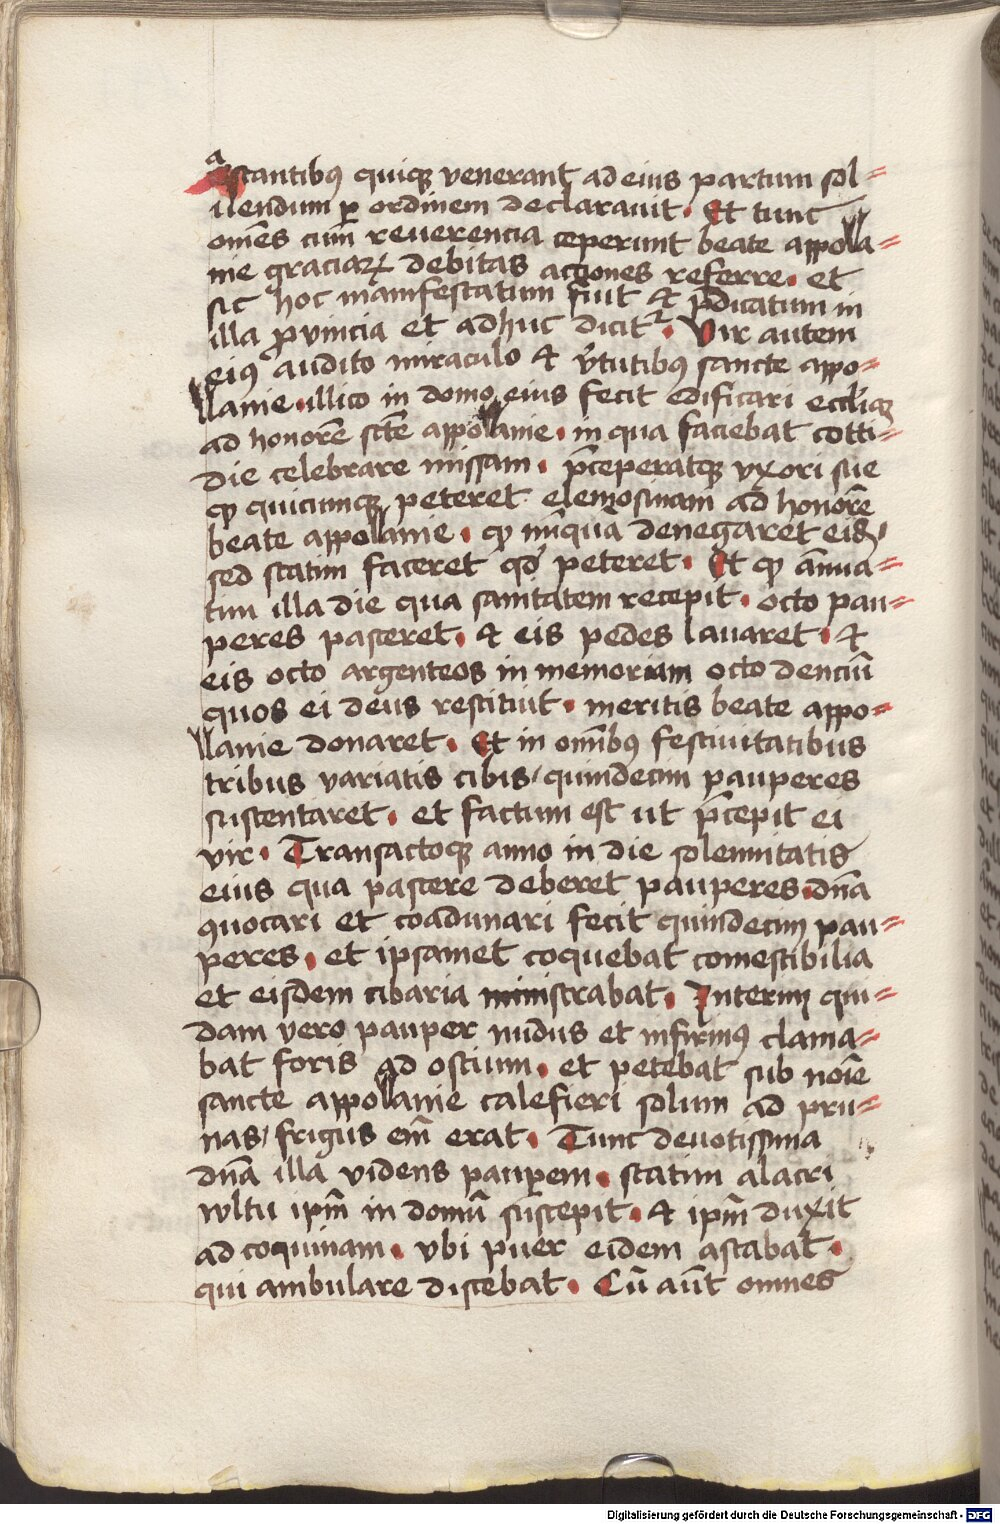 astantibꝰ quiqꝫ venerant ad eius partum sol⸗
uendum ꝑ ordinem declarauit. Et tunc
om̄es cum reuerencia ceperunt beate appolla⸗
nie graciaꝝ debitas actiones referre. et
sic hoc manifestatum fiut et p̄dicatum in
illa prouincia et adhuc dicit᷑. Vir autem
eiꝰ audito miraculo et v̄tutibꝰ sancte appo⸗
llanie illico in domo eius fecit edificari eccliāqꝫ
ad honorē scte appollanie. in qua faciebat cotti⸗
die celebrare missam. p̄ceperatqꝫ vxori sue
ꝙ quicumqꝫ peteret elemosinam ad honorē
beate appollanie. ꝙ nūqua denegaret eid̄
sed statim faceret qd̛ peteret. Et ꝙ ānua⸗
tim illa die qua sanitatem recepit. octo pau⸗
peres pasceret. et eis pedes lauaret. et
eis octo argenteos in memoriam octo denciū
quos ei deus restituit. meritis beate appo⸗
llanie donaret. Et in omībꝰ festiuitatibus
tribus variatis cibis/ quindecim pauperes
sustentaret. et factum est ut p̄cepit ei
vir. Transactoqꝫ anno in die solennitatis
eius qua pascere deberet pauperes. dn̄a
ꝯuocari et coadunari fecit quindecim pau⸗
peres. et ipsamet coquebat comestibilia
et eisdem cibaria ministrabat. Interim qui⸗
dam vero pauper nudus et infirmꝰ clama⸗
bat foris ad ostium. et petebat sub noīe
sancte appollanie calefieri solum ad pru⸗
nas/ frigus em̄ erat. Tunc deuotissima
dn̄a illa videns pauꝑem. statim alacri
wltu ipm̄ in domū suscepit. et ipm̄ duxit
ad coquinam. vbi puer eidem astabat.
qui ambulare discebat. Cū aūt omnes
Digitalisierung gefördert durch die Deutsche Forschungsgemeinschaft - DFG